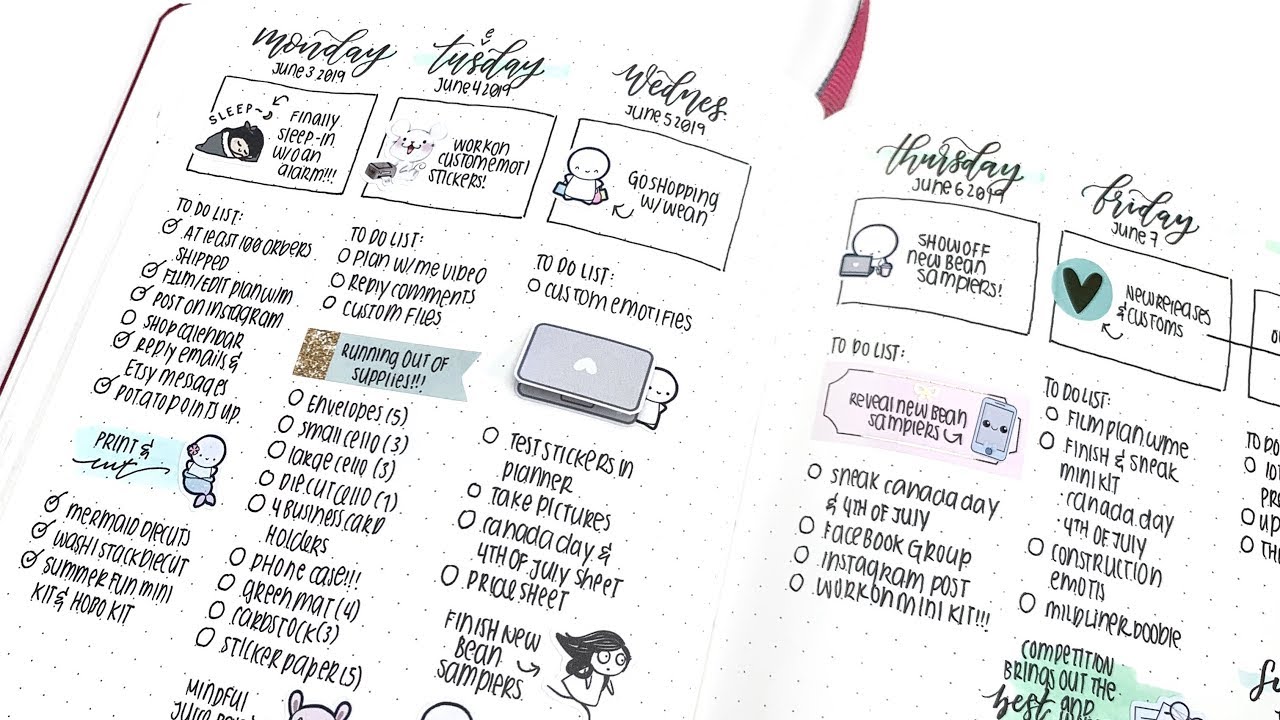 monday
June 3 2019
SLEEP~
Finally
sleep-in
w/o an
alarm!!!
TO DO LIST:
At least 100 orders
shipped
Film/edit planwm
Post on Instagram
Shop calendar
Reply emails &
Etsy messages
Potato points up
PRINT &
cut
mermaid diecuts
washi stack diecut
summer fun mini
kit & hobo kit
tusday
e
June 4 2019
work on
custom emoti
stickers!
TO DO LIST:
Plan w/ me video
Reply comments
Custom files
Running out of
supplies!!!
Envelopes (5)
small cello (3)
large cello (3)
diecut cello (1)
4 business card
holders
phone case!!!
green mat (4)
cardstock (3)
sticker paper (5)
mindful
wednes
June 5 2019
Go shopping
w/ wean
TO DO LIST:
custom emoti fies
Test stickers in
planner
Take pictures
Canada day &
4th of July sheet
Price sheet
Finish new
bean
samplers
thursday
June 6 2019
Show off
new bean
samplers!
TO DO LIST:
Reveal new bean
samplers
Sneak Canada day
& 4th of July
Facebook group
Instagram post
Work on mini kit!!!
friday
June 7
New releases
& customs
TO DO LIST:
Film planwme
Finish & sneak
mini kit
· Canada day
· 4th of July
Construction
emotis
Mildliner doodle
Competition
brings out the
best and
TO DO